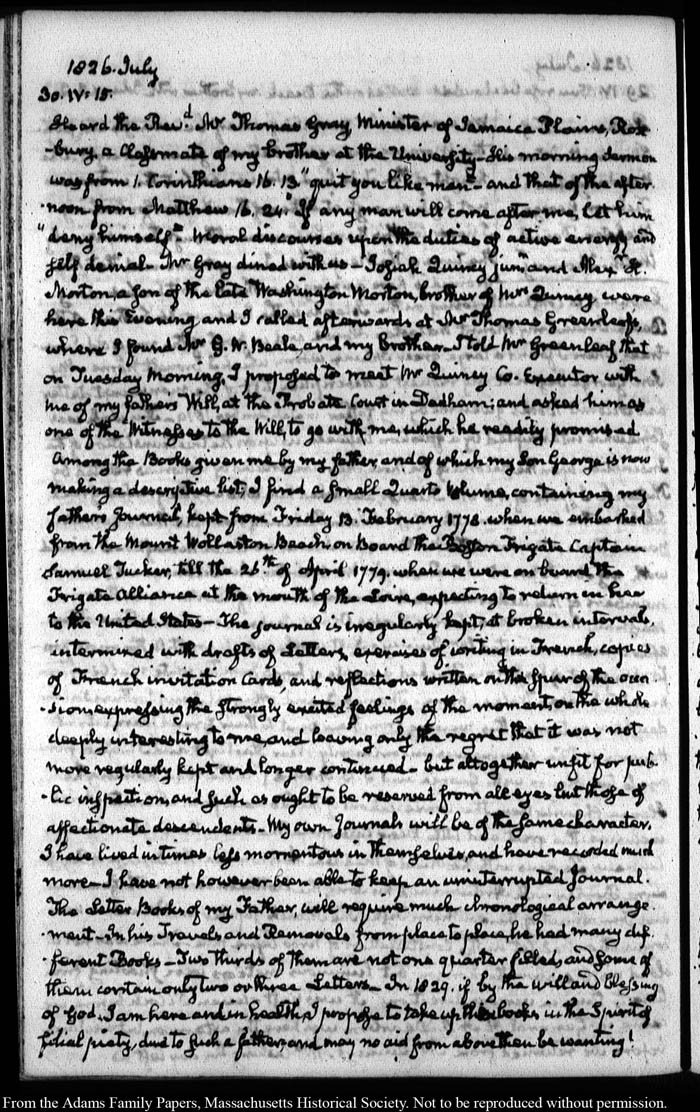 1826. July
30. IV: 15.
Heard the Revd. Mr Thomas Gray, Minister of Jamaica Plains, Rox-
-bury, a Classmate of my brother at the University. His morning Sermon
was from 1. Corinthians 16. 13 "quit you like men" and that of the after-
-noon from Matthew 16. 24. "If any man will come after me, let him
"deny himself." Moral discourses upon the duties of active energy and
self denial. Mr Gray dined with us. Josiah Quincy junr and Alexr
Morton, a Son of the late Washington Morton, brother of Mrs Quincy were
here this Evening and I called afterwards at Mr Thomas Greenleaf's,
where I found Mr G. W. Beale, and my Brother. I told Mr Greenleaf that
on Tuesday Morning, I proposed to meet Mr Quincy Co. Executor with
me of my fathers Will, at the Probate Court in Dedham; and asked him as
one of the Witnesses to the Will, to go with me, which he readily promised
Among the Books given me by my father, and of which my Son George is now
making a descriptive list, I find a Small Quarto Volume, containing my
father's Journal, kept from Friday 13. February 1778. when we embarked
from the Mount Wollaston Beach on Board the Boston Frigate Captain
Samuel Tucker, till the 26th of April 1779. when we were on board the
Frigate Alliance at the mouth of the Loire, expecting to return in her
to the United States— The journal is irregularly kept, at broken intervals,
intermixed with drafts of Letters, exercises of writing in French, copies
of French invitation Cards, and reflections written on the spur of the occa-
-sion, expressing the strongly excited feelings of the moment, on the whole
deeply interesting to me, and leaving only the regret that it was not
more regularly kept and longer continued— but altogether unfit for pub-
-lic inspection, and such as ought to be reserved from all eyes but those of
affectionate descendents— My own Journals will be of the same character.
I have lived in times less momentous in themselves, and have recorded much
more— I have not however been able to keep an uninterrupted Journal.
The Letter Books of my Father, will require much chronological arrange-
-ment— In his Travels and Removals from place to place, he had many dif-
-ferent Books— Two thirds of them are not one quarter filled, and some of
them contain only two or three Letters— In 1829. if by the will and blessing
of God, I am here and in health, I propose to take up the books in the Spirit of
filial piety, due to such a father, and may no aid from above then be wanting!
From the Adams Family Papers, Massachusetts Historical Society. Not to be reproduced without permission.